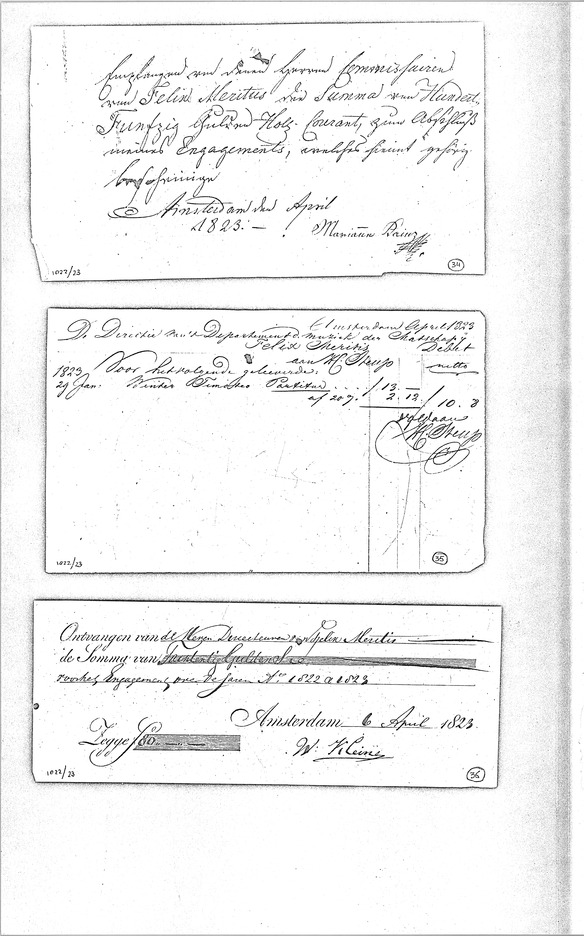 Empfangen von denen Herren Commissairen
von Felix Meritus die Summa von Hundert,
Funfzig Gulden Holz. Courant, zum Abschluß
meines Engagements, welches hiermit gehörig
bescheinige
Amsterdam den April
1823. —
Marianne Kainz
1022/23
34
Amsterdam April 1823
De Directie van't Departement d. muziek der Maatschappij
Felix Meritis Debet
aan H. Steup
1823 Voor het volgende geleverde: netto
29 Jan. Winter Partitur .... f 13. —
af 20 %. 2. 12. f 10. 8
voldaan
H. Steup
1022/23
35
Ontvangen van de Heeren Directeuren van Felix Meritis
de Somma van Guldens
voor het Engagement over de Jaren Ao 1822 a 1823
Amsterdam 6 April 1823.
Zegge f 80
W. Kleine
1022/23
36